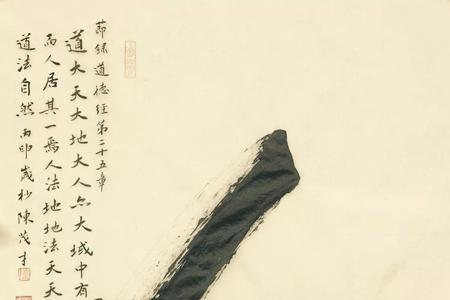 節錄道德經第二十五章
道大天大地大人亦大域中有
而人居其一焉人法地地法天天
道法自然丙申歲杪陳茂